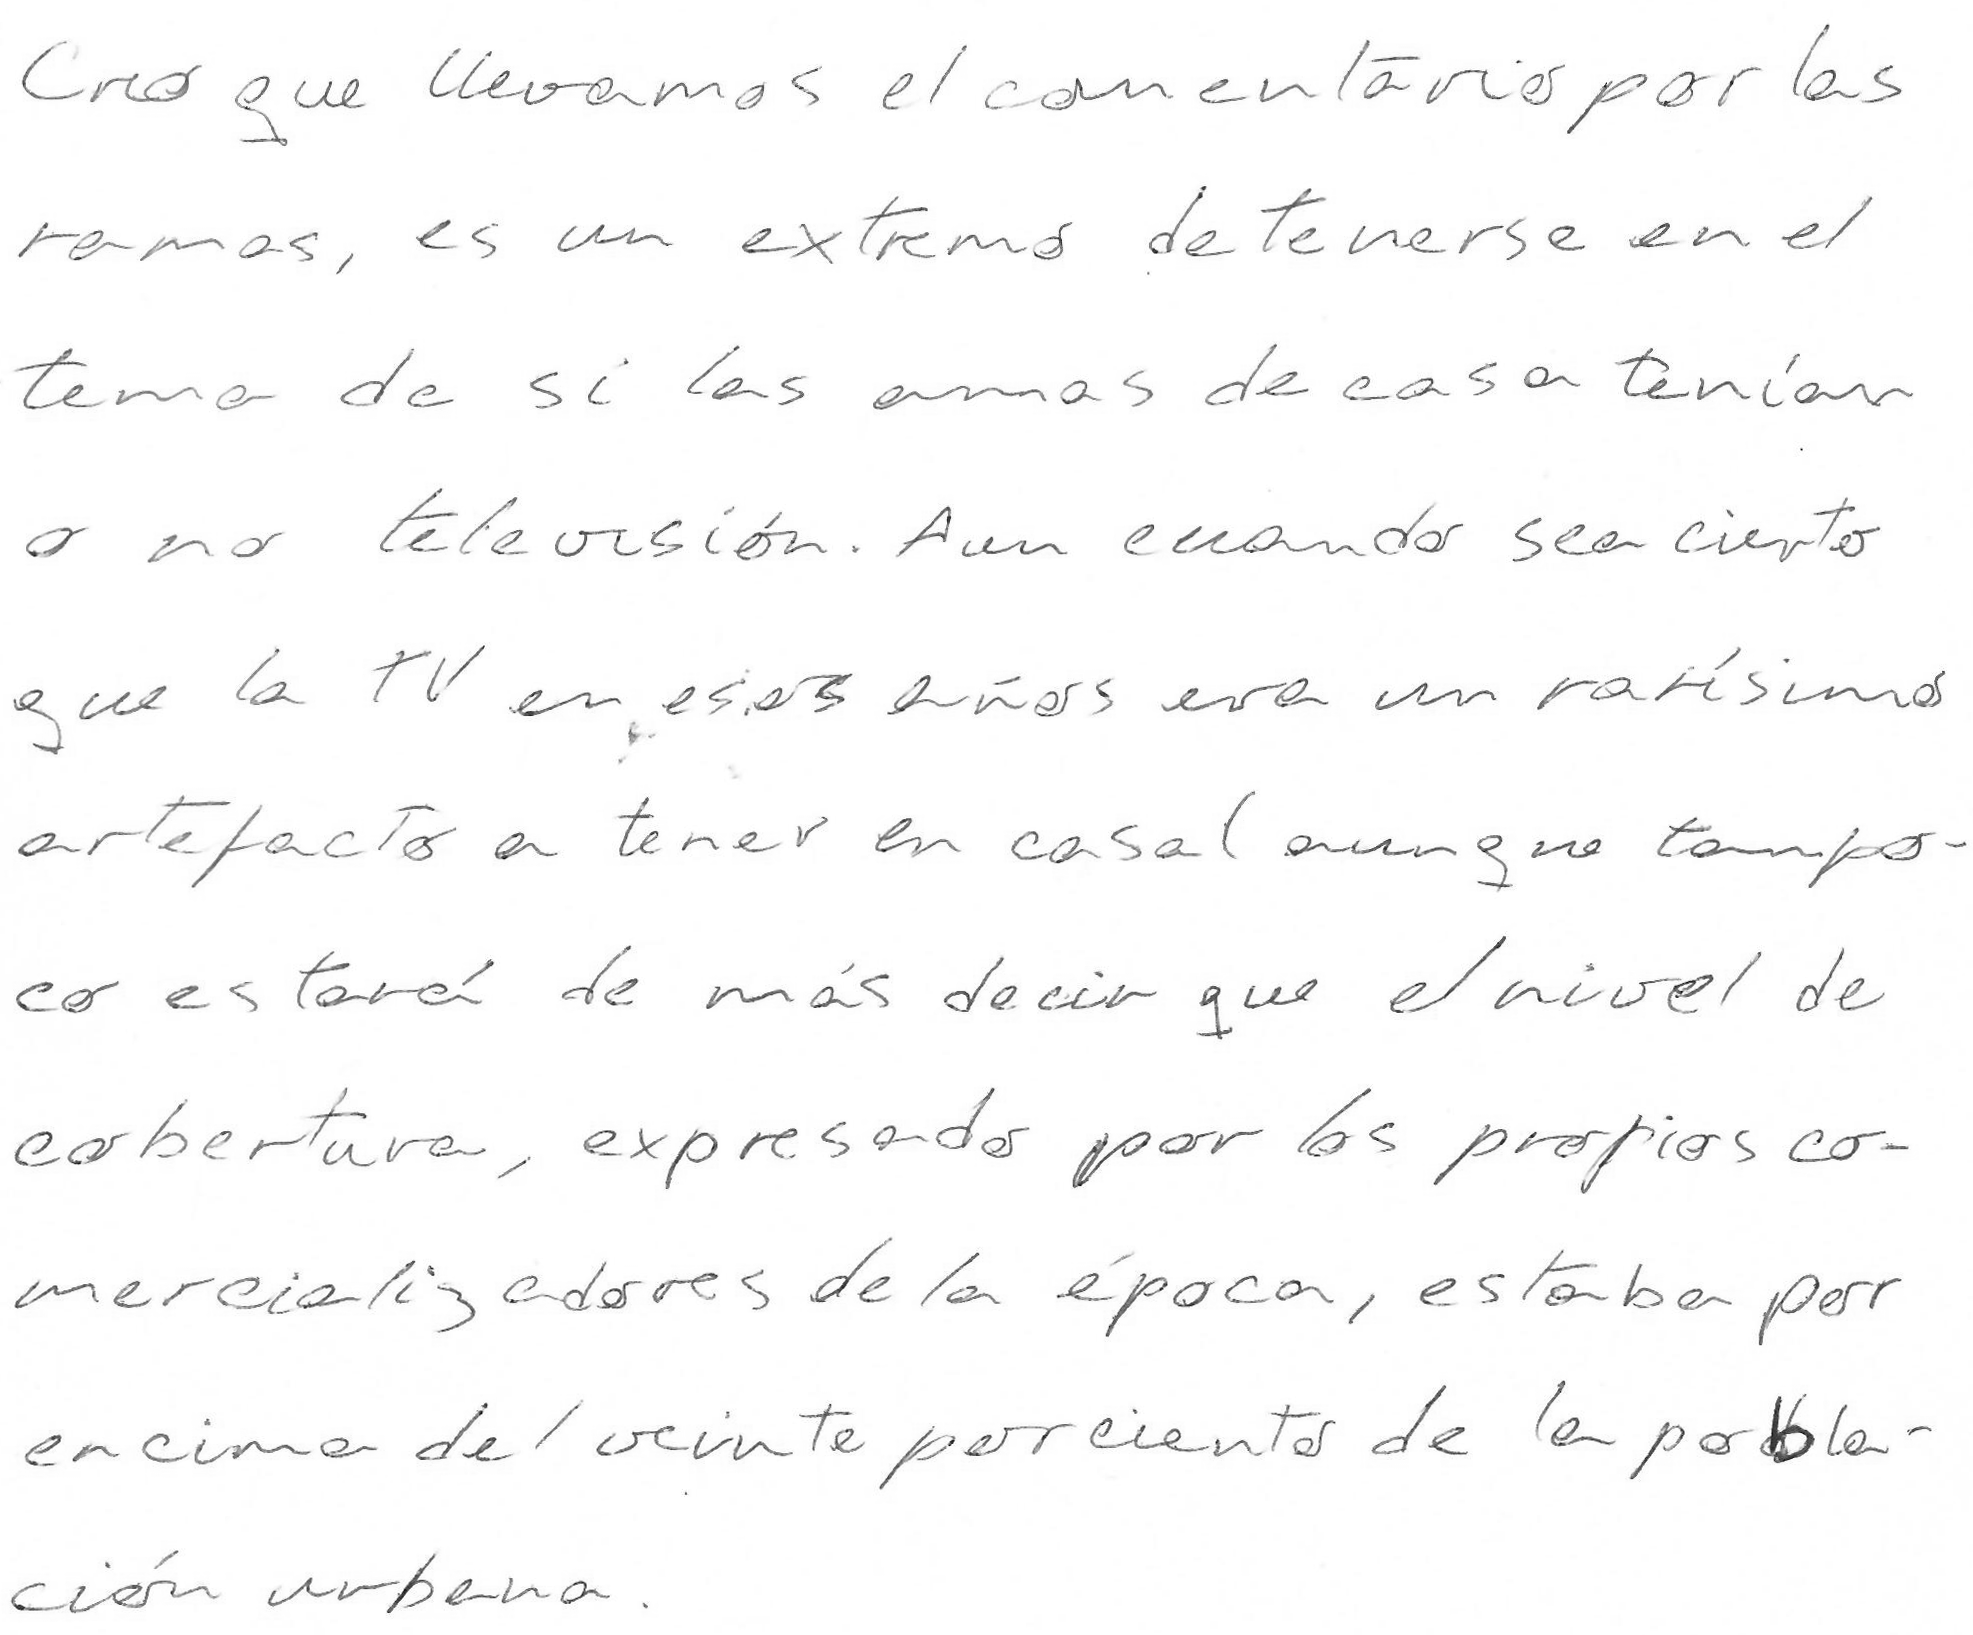 Creo que llevamos el comentario por las
ramas, es un extremo detenerse en el
tema de si las amas de casa tenían
o no televisión. Aun cuando sea cierto
que la TV en esos años era un rarísimo
artefacto a tener en casa (aunque tampo-
co estará de más decir que el nivel de
cobertura, expresado por los propios co-
mercializadores de la época, estaba por
encima del veinte por ciento de la pobla-
ción urbana.